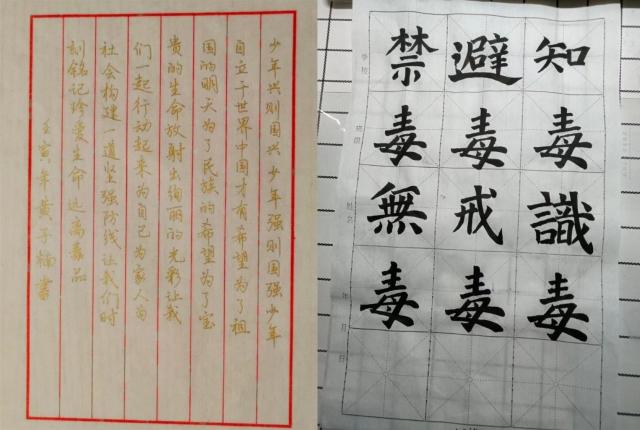 少年兴则国兴少年强则国强少年
自立于世界中国才有希望为了祖
国的明天为了民族的希望为了宝
贵的生命放射出绚丽的光彩让我
们一起行动起来为自己为家人为
社会构建一道坚强防线让我们时
刻铭记珍爱生命远离毒品
壬寅年黄子楠書
知毒識毒
避毒戒毒
禁毒無毒
学校
班级
姓名
年月日